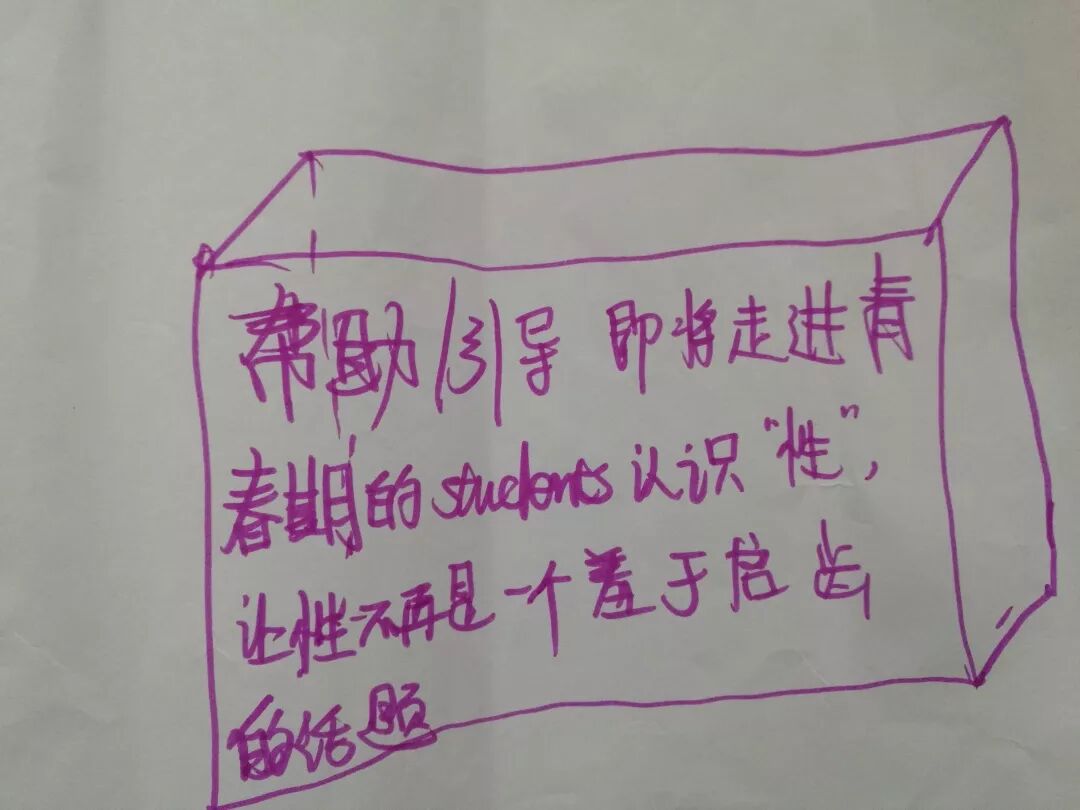 帮助/引导 即将走进青
春期的students认识“性”，
让性不再是一个羞于启齿
的话题